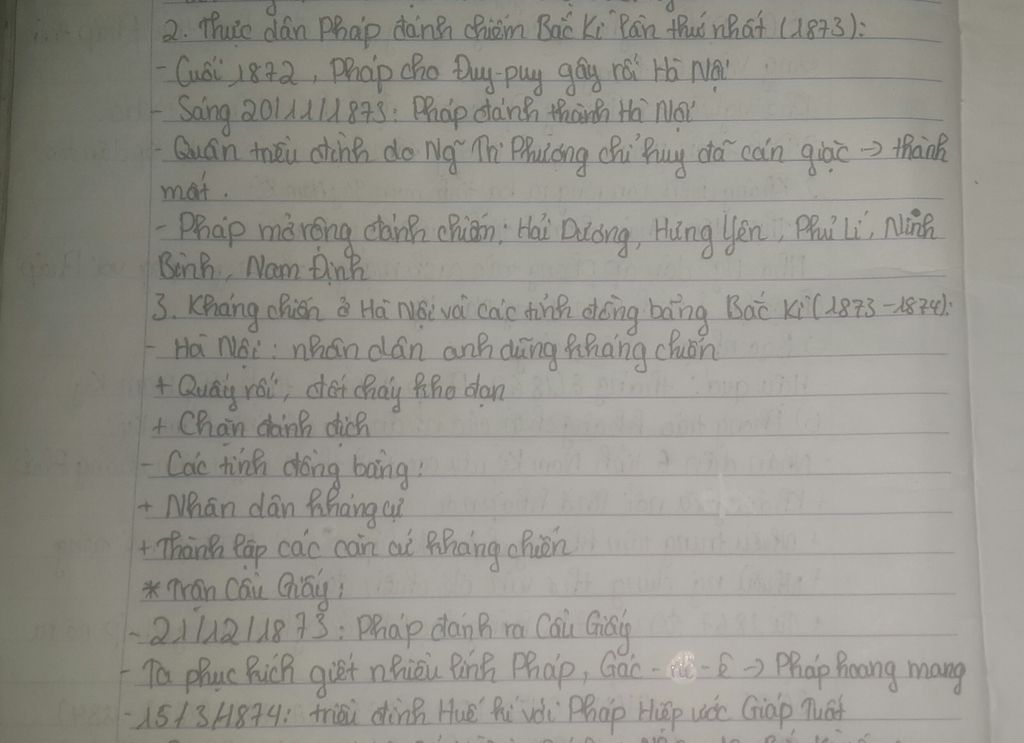 2. Thực dân Pháp đánh chiếm Bắc Kì lần thứ nhất (1873):
- Cuối 1872, Pháp cho Đuy-puy gây rối Hà Nội
- Sáng 20/11/1873: Pháp đánh thành Hà Nội
- Quân triều đình do Ng~ Tri Phương chỉ huy đã cản giặc → thành
mất.
- Pháp mở rộng đánh chiếm: Hải Dương, Hưng Yên, Phủ Lí, Ninh
Bình, Nam Định
3. Kháng chiến ở Hà Nội và các tỉnh đồng bằng Bắc Kì (1873-1874):
- Hà Nội: nhân dân anh dũng kháng chiến
+ Quấy rối, đốt cháy kho đạn
+ Chặn đánh địch
- Các tỉnh đồng bằng:
+ Nhân dân kháng cự
+ Thành lập các căn cứ kháng chiến
* Trận Cầu Giấy:
- 21/12/1873: Pháp đánh ra Cầu Giấy
- Ta phục kích giết nhiều lính Pháp, Gác - - ê → Pháp hoang mang
- 15/3/1874: triều đình Huế kí với Pháp Hiệp ước Giáp Tuất